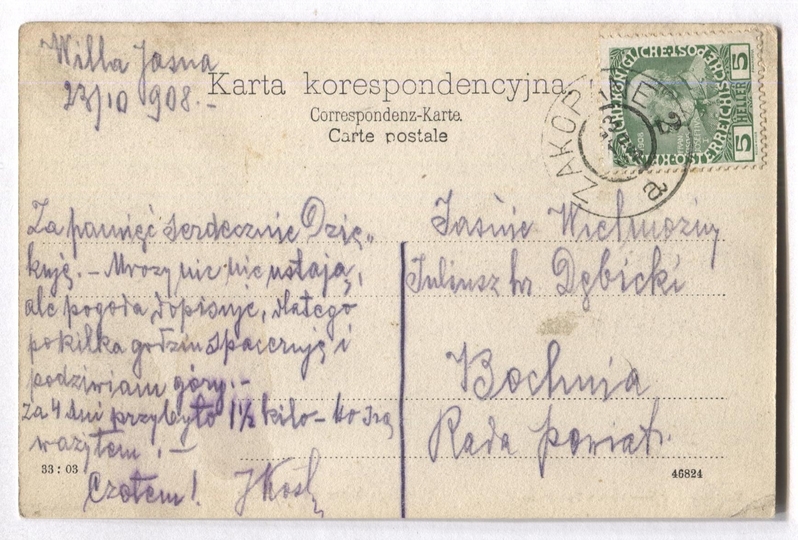 Willa Jasna
23/10 908.-
Karta korespondencyjna.
Correspondenz-Karte.
Carte postale
ZAKOP
a
5 HELLER 5
Za pamięć serdecznie Dzię„
kuję. - Mrozy nic nie ustają,
ale pogoda dopisuje, dlatego
po kilka godzin spaceruję i
podziwiam góry.-
Za 4 dni przybyło 1½ kilo - bo się
ważyłem. -
Czołem!
Jaśnie Wielmożny
Juliusz hr Dębicki
Bochnia
Rada powiat.
33 : 03
46824